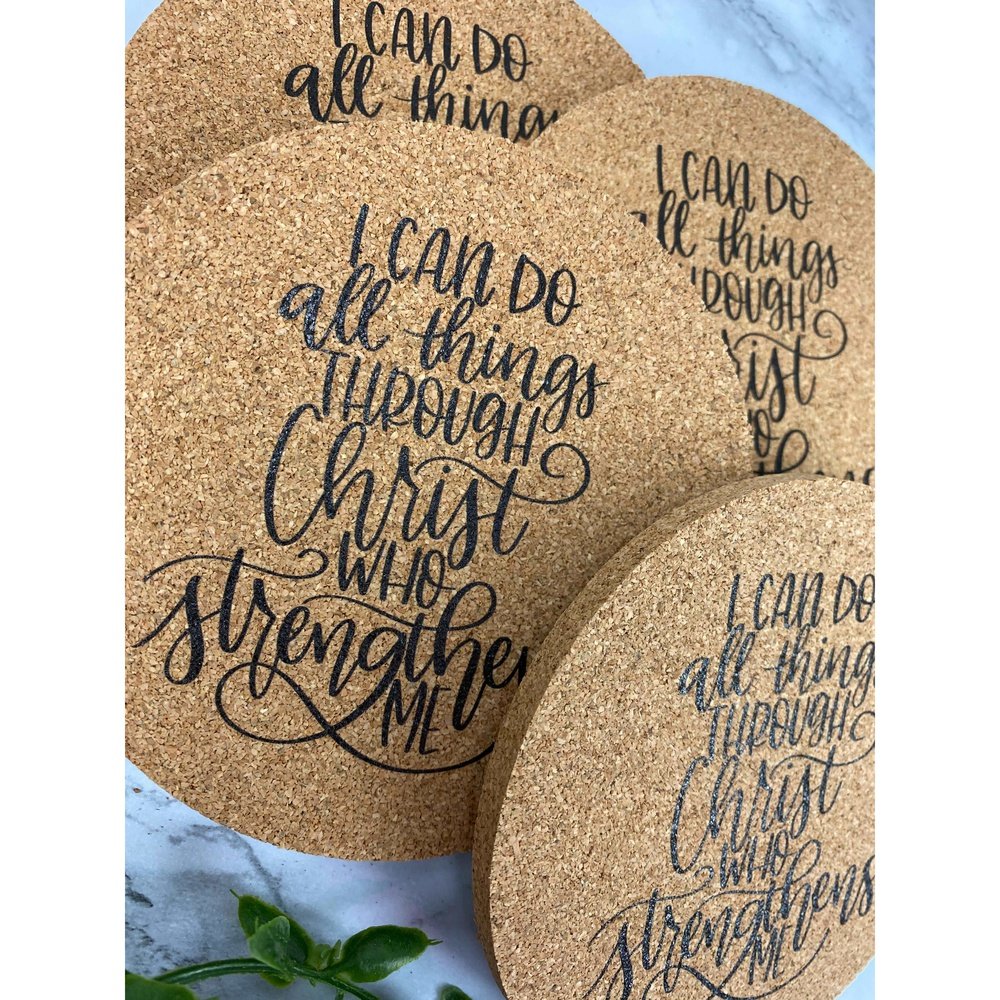 I CAN DO
all things
I CAN DO
all things
THROUGH
Christ
WHO
strengthens
ME
I CAN DO
all things
THROUGH
Christ
WHO
strengthens
ME
I CAN DO
all things
THROUGH
Christ
WHO
strengthens
ME